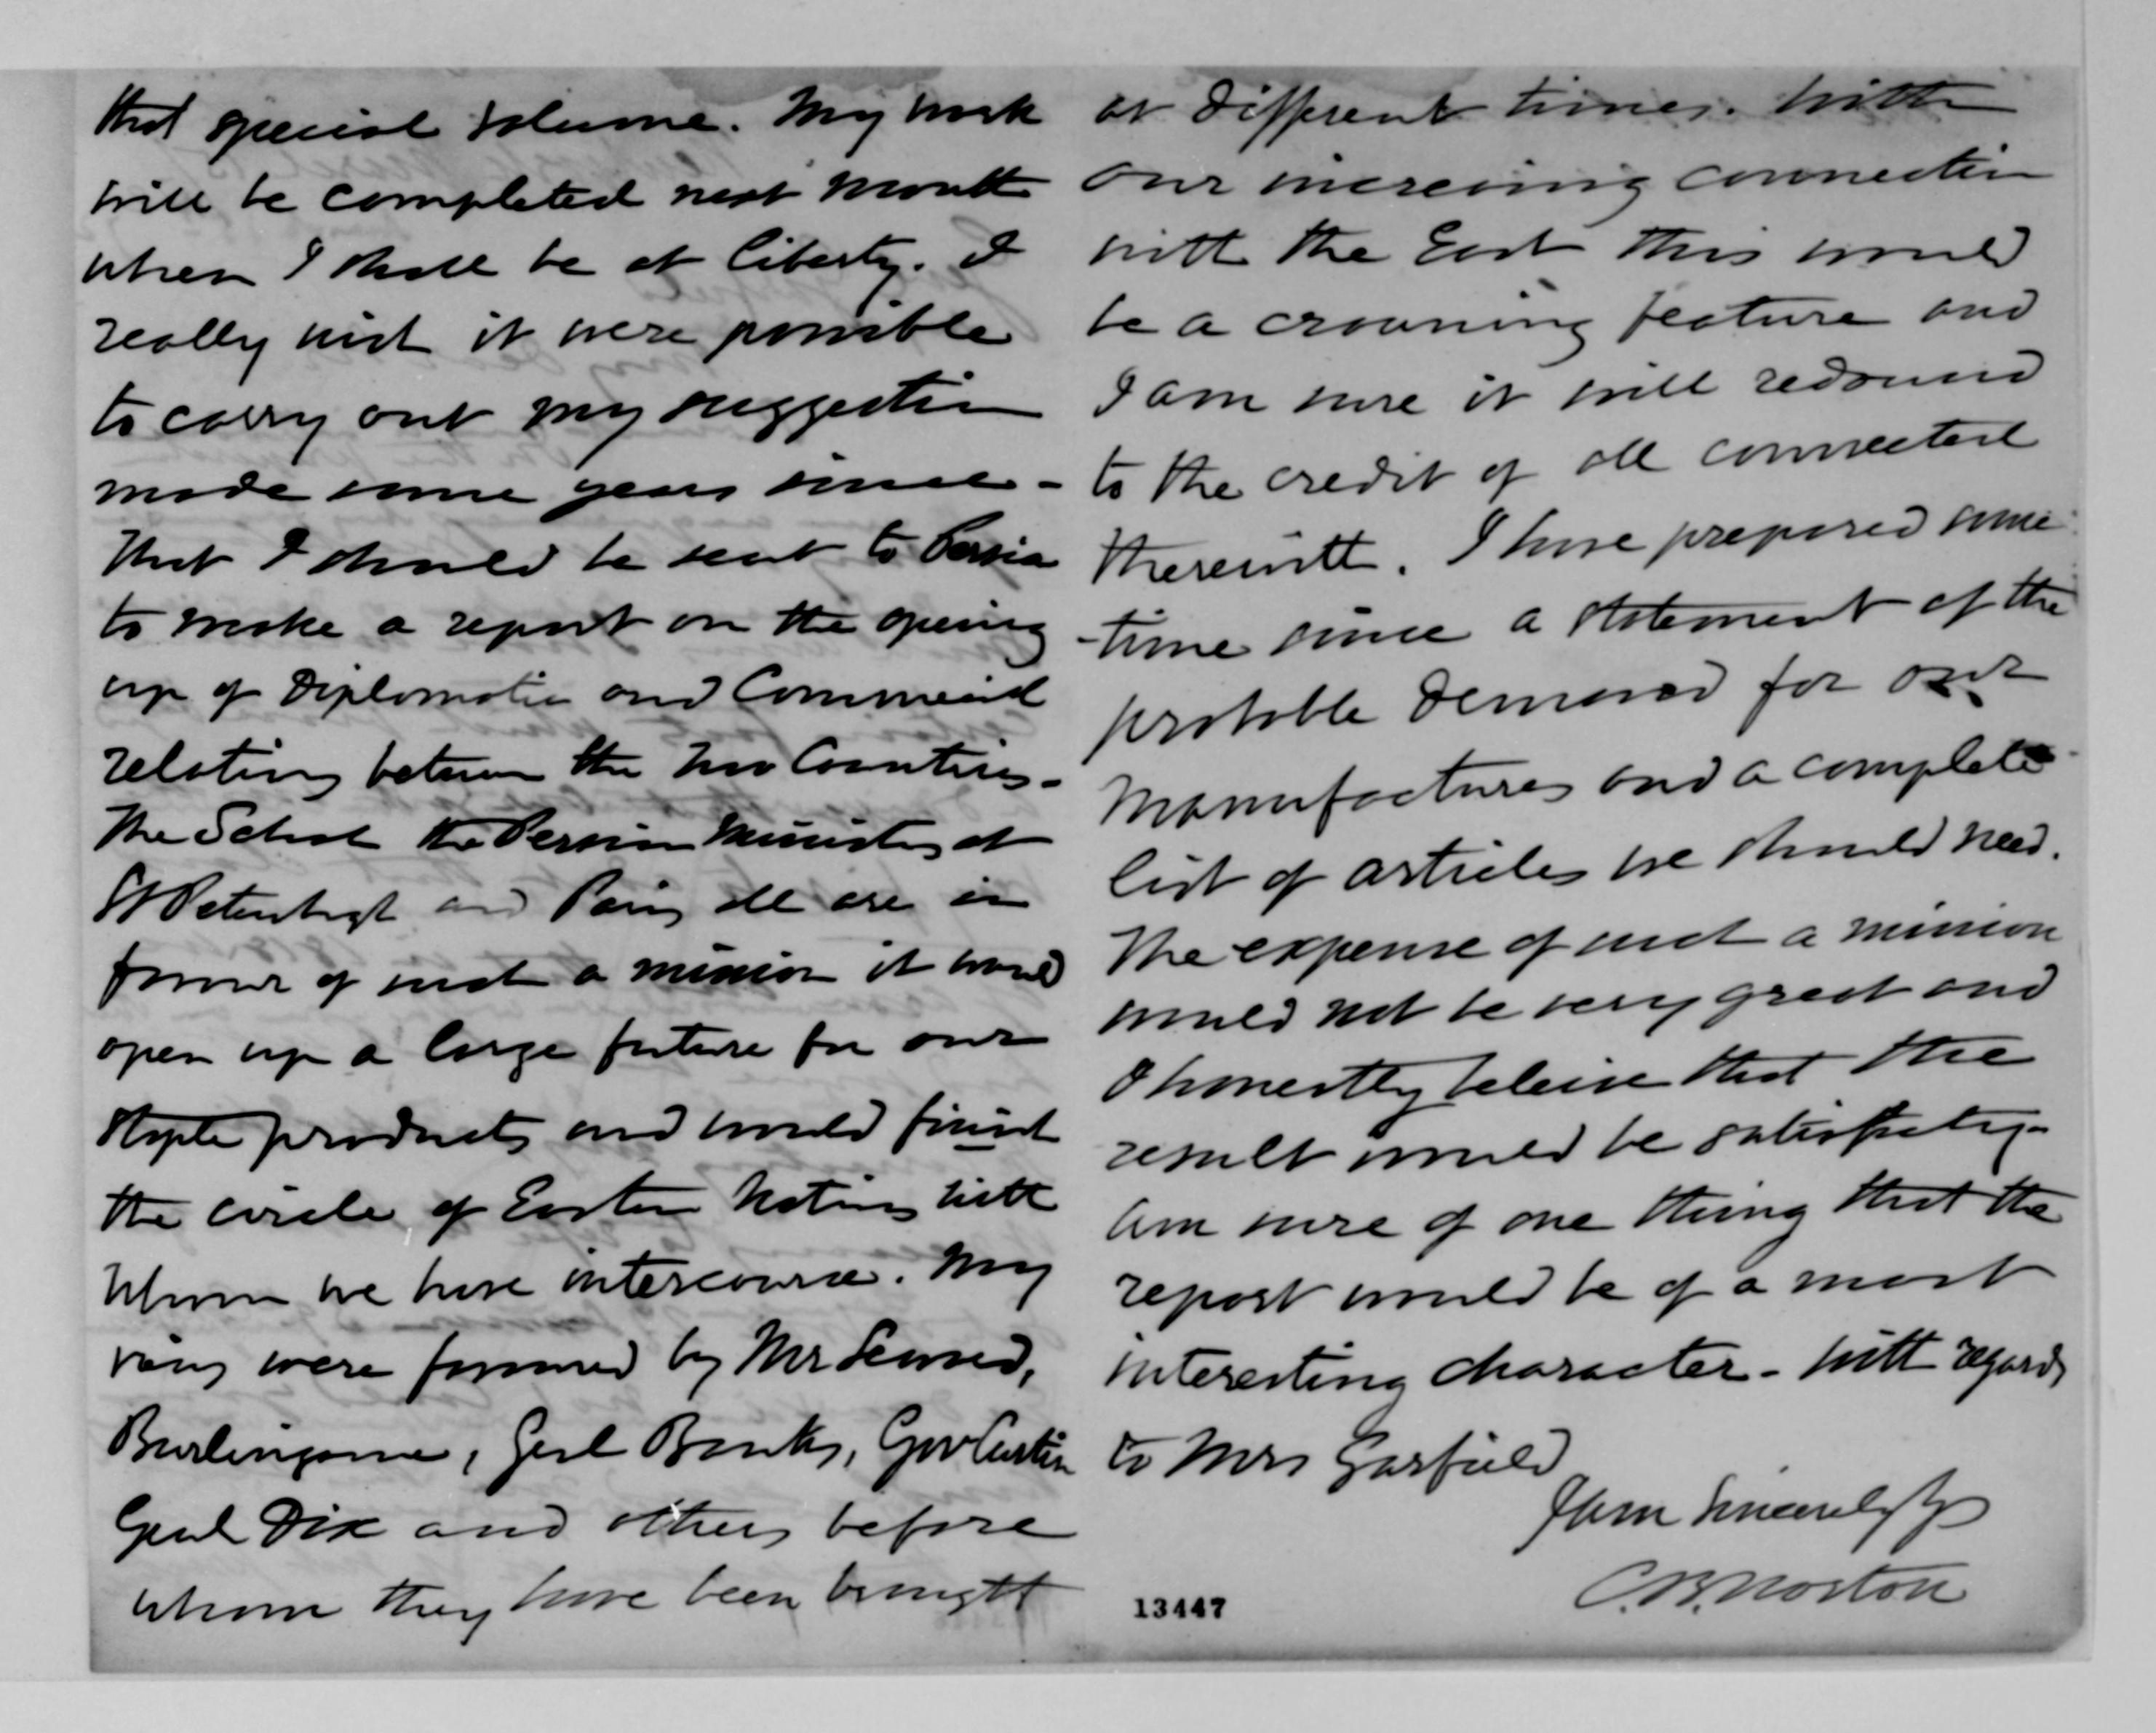 that special volume. My work
will be completed next month
when I shall be at liberty. I
really wish it were possible
to carry out my suggestion
made some years since -
that I should be sent to Persia
to make a report on the opening
up of Diplomatic and Commercial
relations between the two Countries -
The Schah the Persian Ministers at
St Petersburgh and Paris all are in
favour of such a mission it would
open up a large future for our
staple products and would finish
the circle of Eastern Nations with
whom we have intercourse. My
views were favoured by Mr Seward,
Burlingame, Genl Banks, Gov Curtin
Genl Dix and others before
whom they have been brought
at different times. With
our increasing connection
with the East this would
be a crowning feature and
I am sure it will redound
to the credit of all connected
therewith. I have prepared some
time since a statement of the
probable demand for our
manufactures and a complete
list of articles we should need.
The expense of such a mission
would not be very great and
I honestly beleive that the
result would be satisfactory -
am sure of one thing that the
report would be of a most
interesting character - with regards
to Mrs Garfield
I am Sincerely Yrs
C. B. Norton
13447